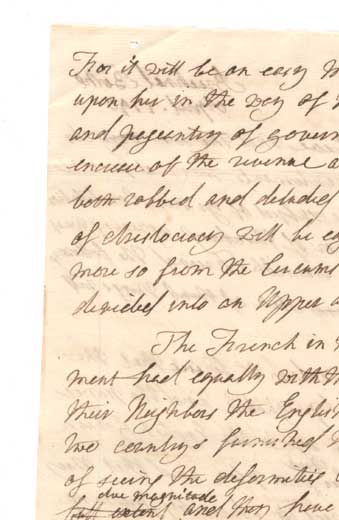 For it will be an easy
upon her in the Day of
and pageantry of govern
encrease of the revenue a
both robbed and deluded
of Aristocracy will be eq
more so from the Circums
devided into an Upper a
The French in
ment had equally with th
their Neighbors the English
two countrys furnished
of seeing the deformities
due magnitude
full extent and they have